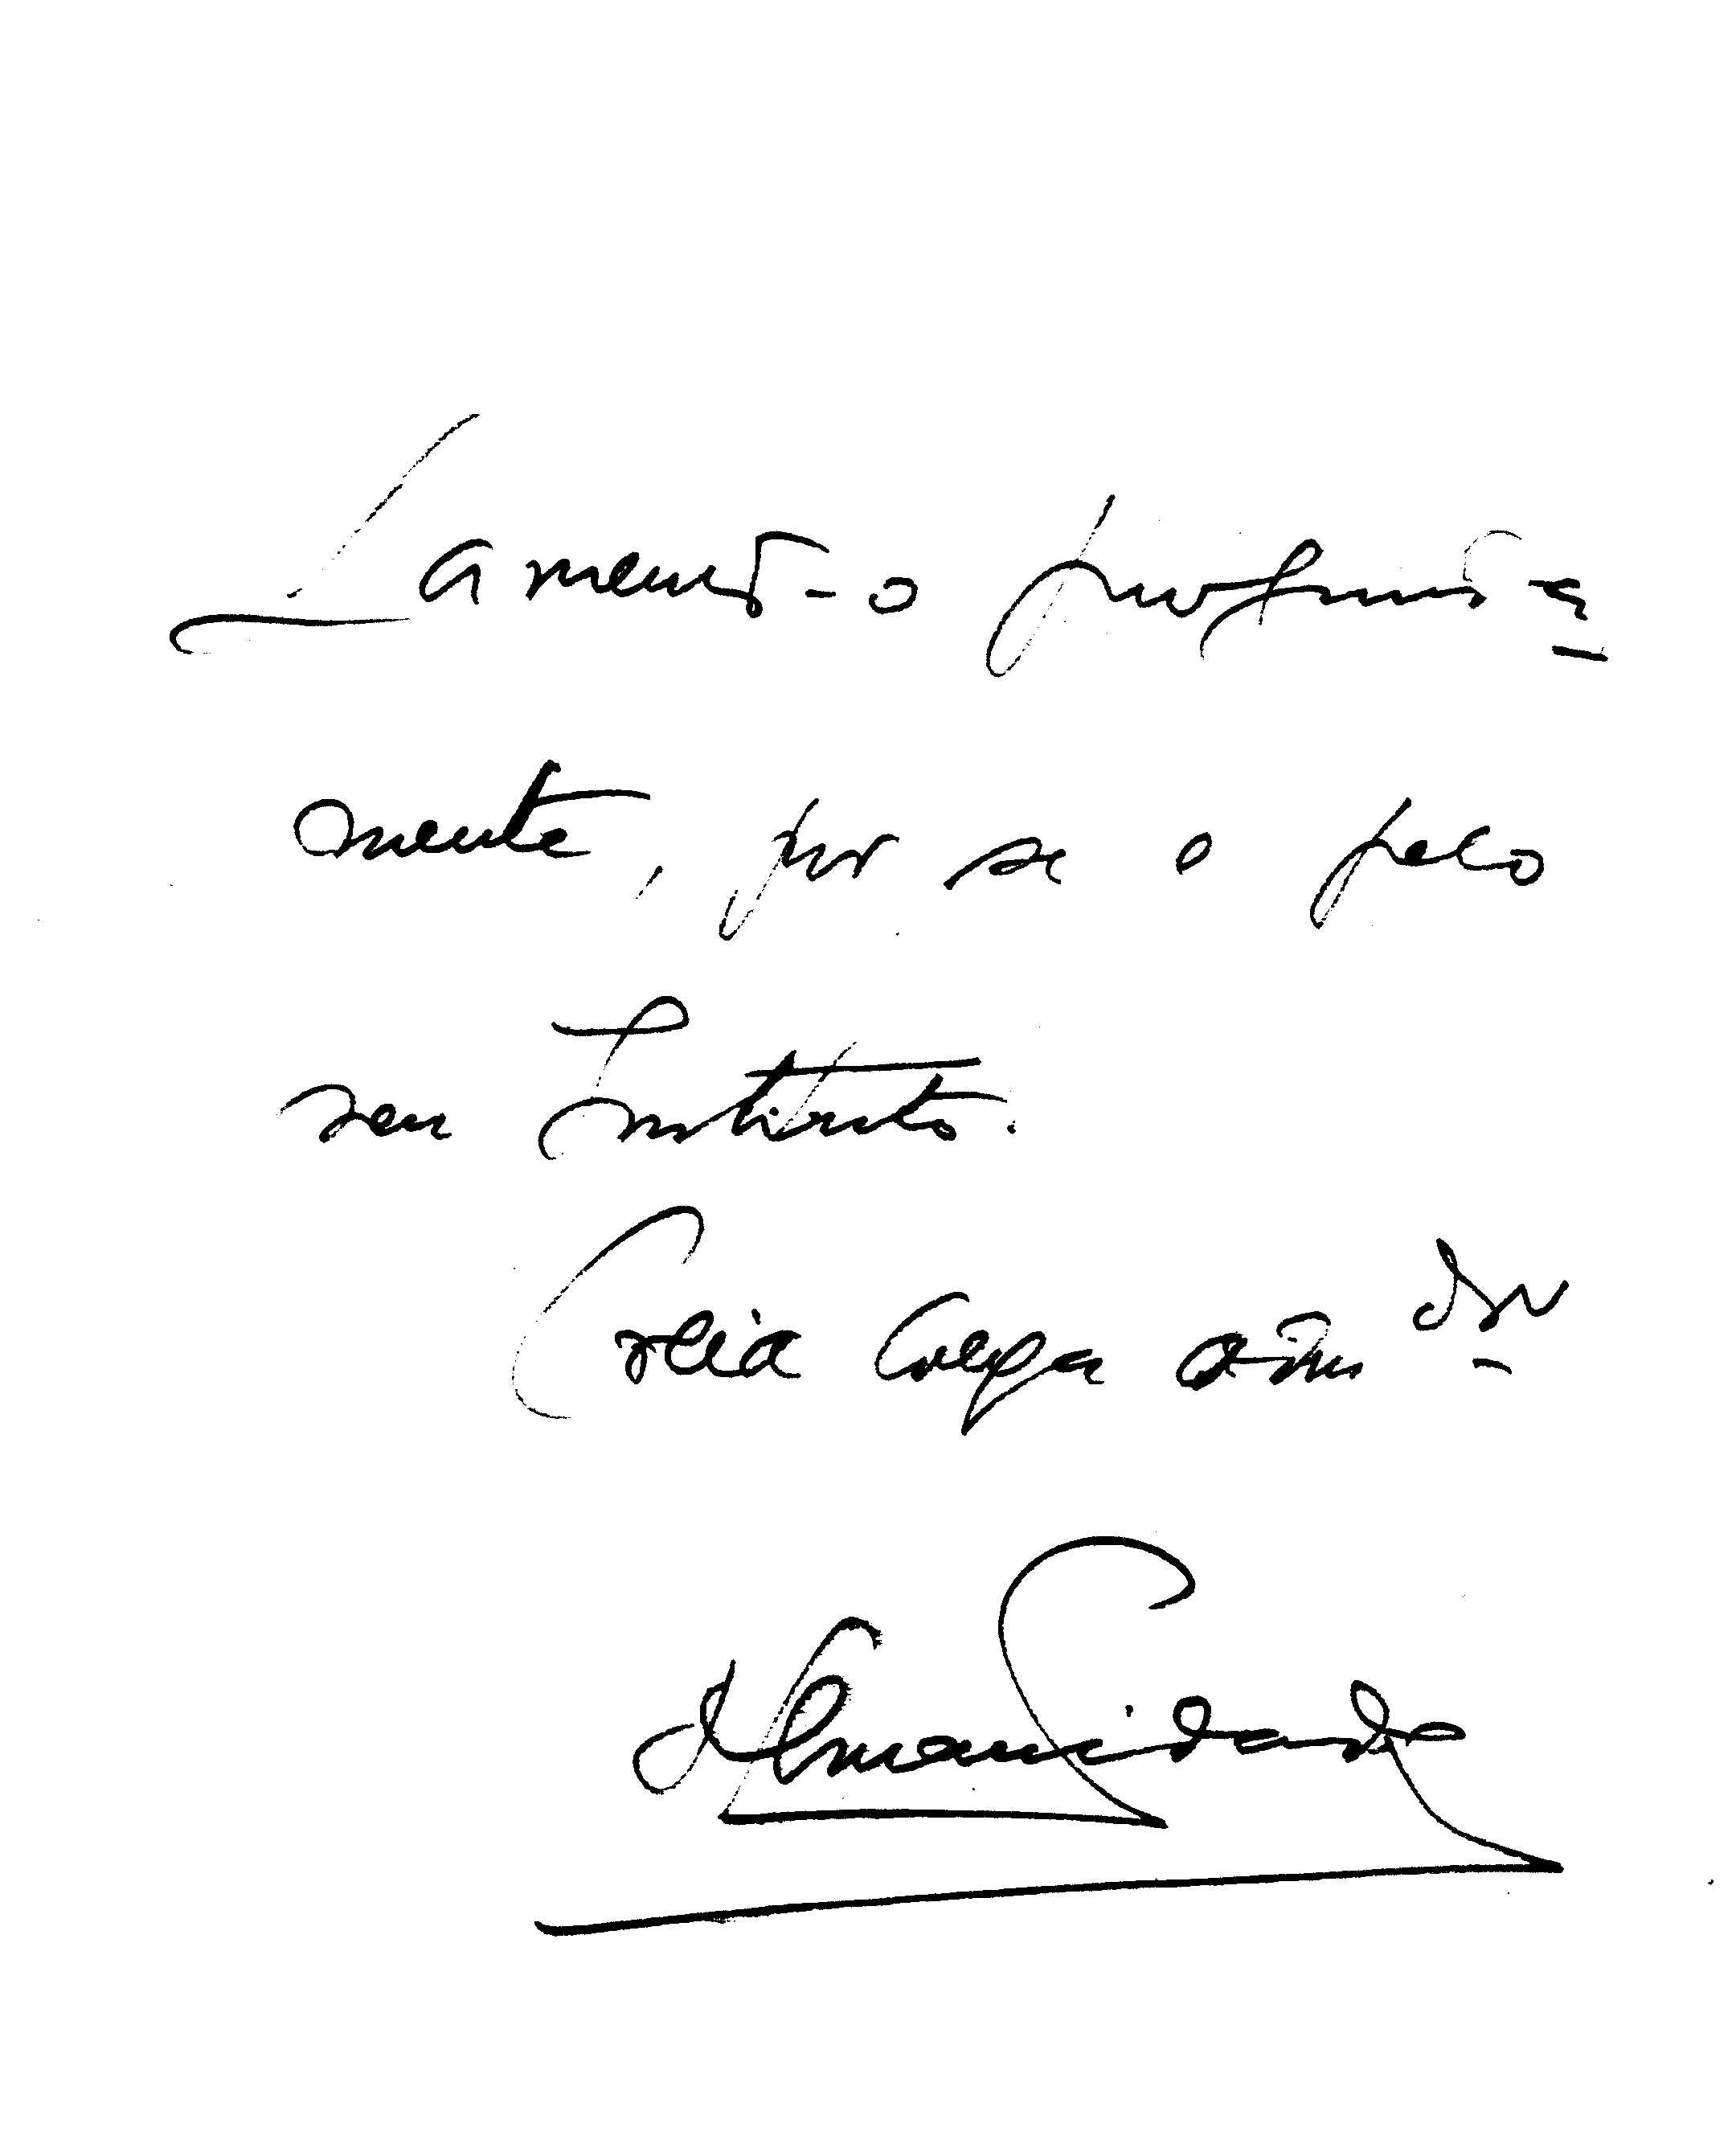 Lamento-o profunda-
mente, por se e pelo
seu Instituto.
Creia Colega